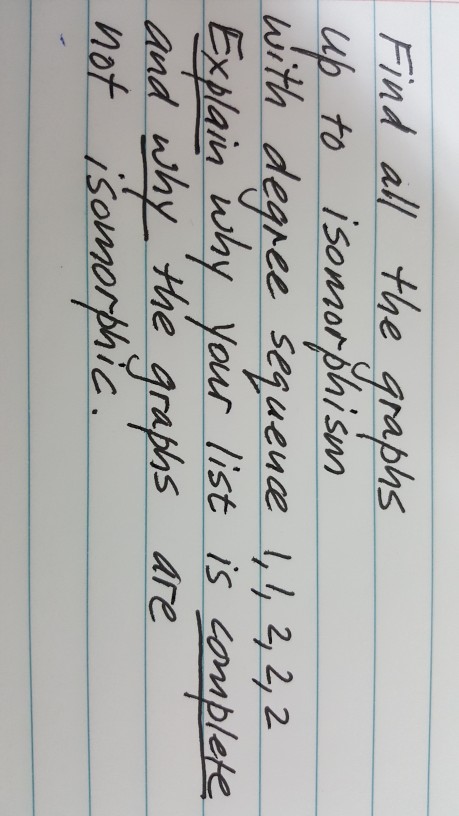 Find all the graphs
up to isomorphism
with degree sequence 1, 1, 2, 2, 2
Explain why your list is complete
and why the graphs are
not isomorphic.